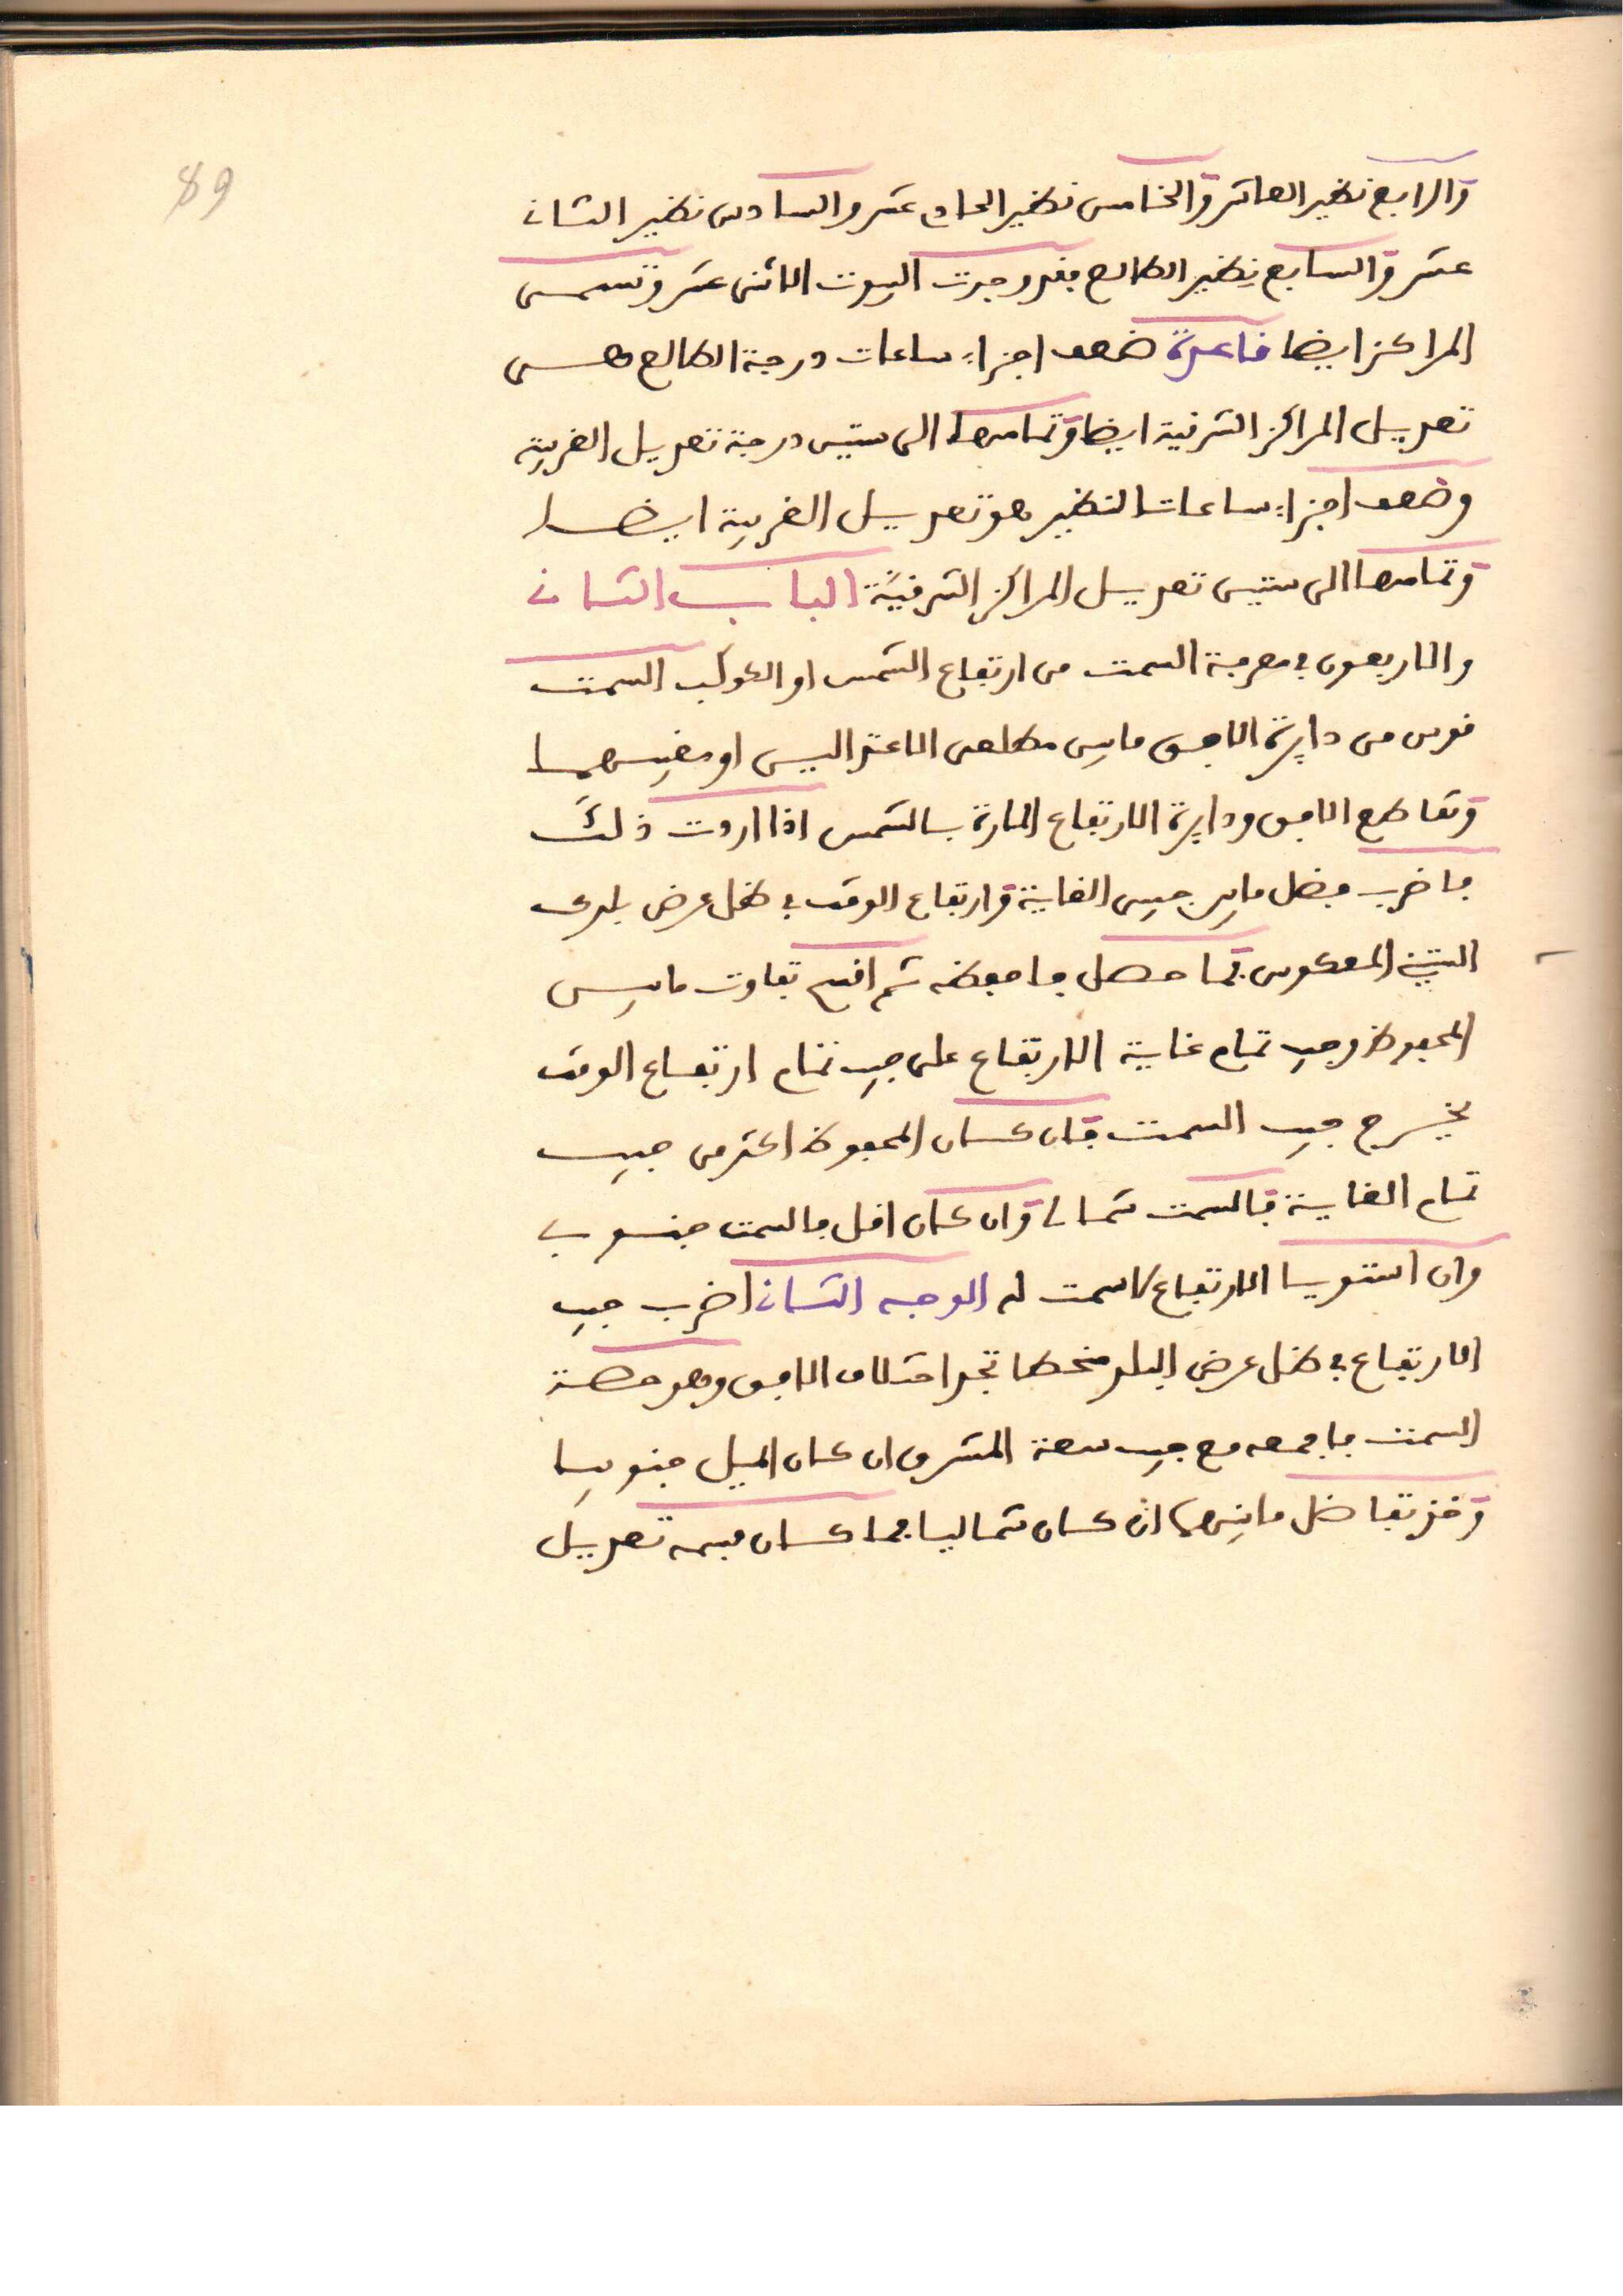 89
والرابع نظير العاشر والخامس نظير الحادي عشر والسادس نظير الثاني
عشر والسابع نظير الطالع فقد وجدت البيوت الاثنى عشر وتسمى
المراكز ايضا فاعدة ضعف اجزاء ساعات درجة الطالع هى
تعديل المراكز الشرقية ايضا وتمامها الى ستين درجة تعديل الغربية
وضعف اجزاء ساعات النظير هو تعديل الغربية ايضا
وتمامها الى ستين تعديل المراكز الشرقية الباب الثاني
والاربعون في معرفة السمت من ارتفاع الشمس او الكوكب السمت
قوس من دايرة الافق مابين مطلعى الاعتدالين او مغيبهما
وتقاطع الافق ودايرة الارتفاع المارة بالشمس اذا اردت ذلك
فاضرب فضل مابين جيبى الغاية وارتفاع الوقت في ظل عرض بلدك
الستيني المعكوس فما حصل فاحفظه ثم اقسم تفاوت مابين
المحفوظ وجيب تمام غاية الارتفاع على جيب تمام ارتفاع الوقت
يخرج جيب السمت فان كان المحفوظ اكثر من جيب
تمام الغاية فالسمت شمالى وان كان اقل فالسمت جنوبي
وان استويا الارتفاع لا سمت له الوجه الثاني اضرب جيب
الارتفاع في ظل عرض البلد منحطا تجد اختلاف الافق وهو حصة
السمت فاجمعه مع جيب سعة المشرق ان كان الميل جنوبيا
وخذ تفاضل مابينهما ان كان شماليا فما كان فسمه تعديل